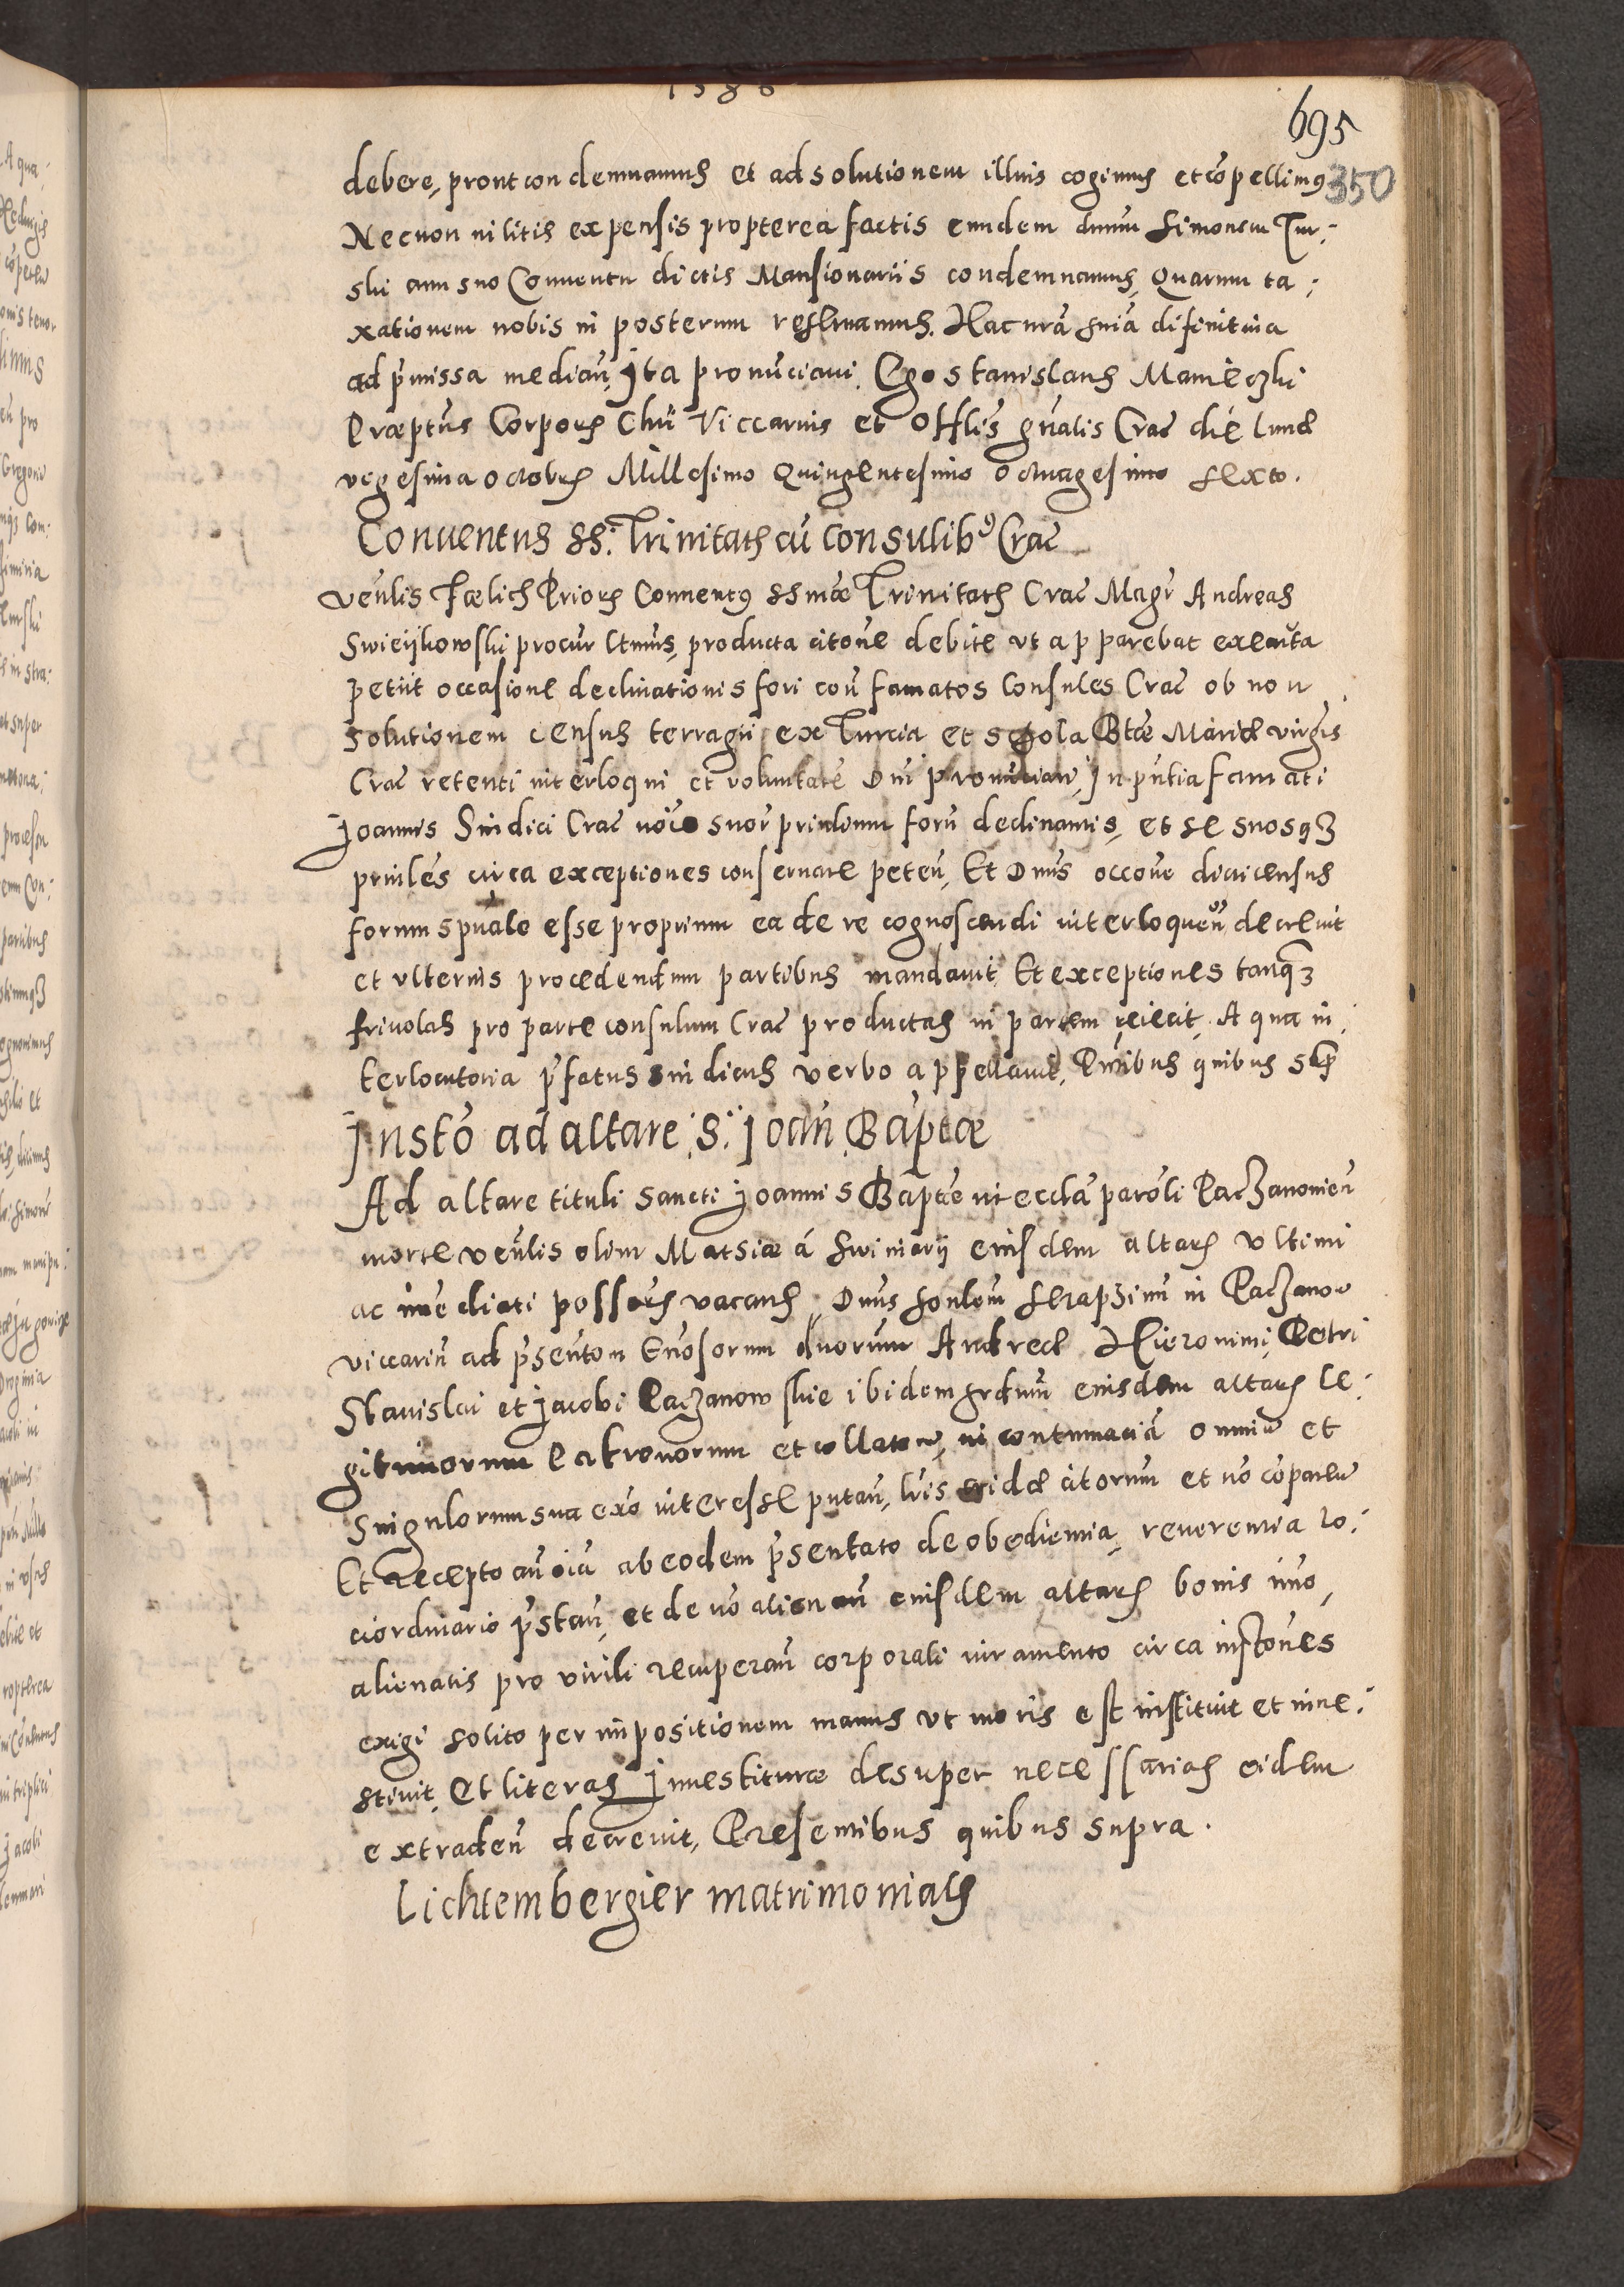 1586
695
350
debere, prout condemnamus et ad solutionem illius cogimus et cōpellimꝰ
Necnon in litis expensis propterea factis eundem dnum Simonem Tur-
ski cum suo Conventu dictis Mansionariis condemnamus, Quarum ta-
xationem nobis in posterum reservamus. Hac nrā sniā difinitiva
ad pmissa median, Ita pronūciavi. Ego Stanislaus
Præptus Corporis Chri Viccarius et Offlis gnalis Crac die Lunæ
vigesima octobris Millesimo Quingentesimo octuagesimo sexto.
Conventus SS. Trinitatis cū Consulibꝰ Crac
Venlis Fœlicis Prioris Conventꝰ SSmæ Trinitatis Crac Magr Andreas
Swieijkowski procur ltmus, producta citone debite ut apparebat executa
petiit occasione declinationis fori con famatos Consules Crac ob non
solutionem census terragii ex Turcia et scola Btæ Mariæ virgis
Crac retenti interloqui et voluntatē Dni pronūciari, In pntia famati
Joannis Sindici Crac noīe suor principum forū declinantis, et se suosqꝫ
priviles circa exceptiones conservare peten, Et Dnus occone
forum spuale esse proprium ea de re cognoscendi interloquen decrevit
et ulterius procedendum partibus mandavit, Et exceptiones tanqꝫ
frivolas pro parte consulum Crac productas in partem reiecit, A qua in-
terlocutoria pfatus Sindicus verbo appellavit, Pntibus quibus sup
Insto ad altare S. Joan Baptæ
Ad altare tituli Sancti Joannis Baptæ in ecclā parōli Paczanovien
morte venlis olim Matsiæ á Swiniary eiusdem altaris ultimi
ac immediati possoris vacans, Dnus in Paczanow
viccariū ad psenton Gnosorum dnorum Andreæ Hieronimi, Petri
Stanislai et Jacobi Paczanowskie ibidem hrdum eiusdem altaris le-
gitimorum Patronorum et collatorū, in contumaciā omniū et
Singulorum sua exō interesse putan, lris eidē citorum et nō cōparen
Et recepto an oīa ab eodem psentato de obedientia, reverentia lo-
ci ordinario pstan, et de nō alienan eiusdem altaris bonis imo,
alienatis pro virili recuperan corporali iuramento circa instones
exigi solito per impositionem manus ut moris est instituit et inve-
stivit, Et literas Investituræ desuper necessarias eidem
extraden decrevit, Presentibus quibus supra.
Lichtembergier matrimonialis